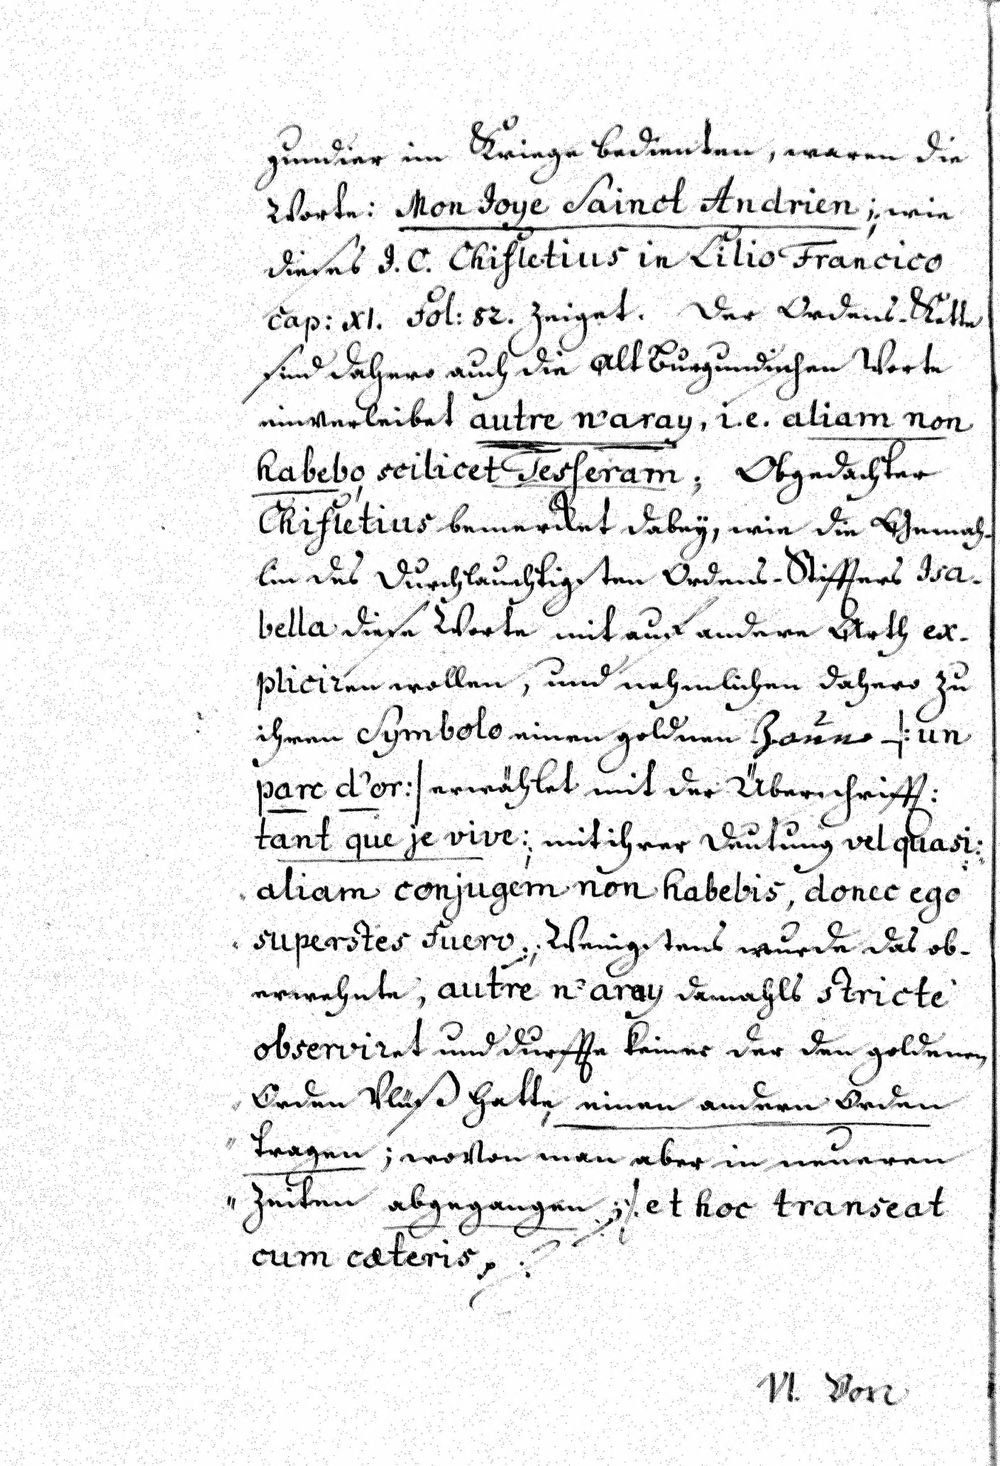 gundier im Kriege bedienten, waren die
Worte: Mon Joye Sainct Andrien; wie
dieses J. C. Chifletius in Lilio Francico
cap: XI. Fol: 82. zeiget. Der Ordens-Kette
sind dahero auch die alt Burgundischen Worte
einverleibet autre n'aray, i.e. aliam non
habebo, scilicet Tesseram; Obgedachter
Chifletius bemerket dabey, wie die Gemah-
lin des Durchlauchtigsten Ordens-Stiffters Isa-
bella diese Worte mit auf andere Arth ex-
pliciren wollen, und nehmlichen dahero zu
ihren Symbolo einen goldnen Zaun |: un
parc d'or:| erwählet mit der Überschrifft:
tant que je vive; mit ihrer Deutung vel quasi:
aliam conjugem non habebis, donec ego
superstes fuero; Wenigstens wurde das ob-
erwehnte, autre n'aray damahls stricte
observiret und durffte keiner der den goldenen
Orden Vlüß hatte, einen andern Orden
tragen; wovon man aber in neueren
Zeiten abgegangen; et hoc transeat
cum cæteris.
VI. Von